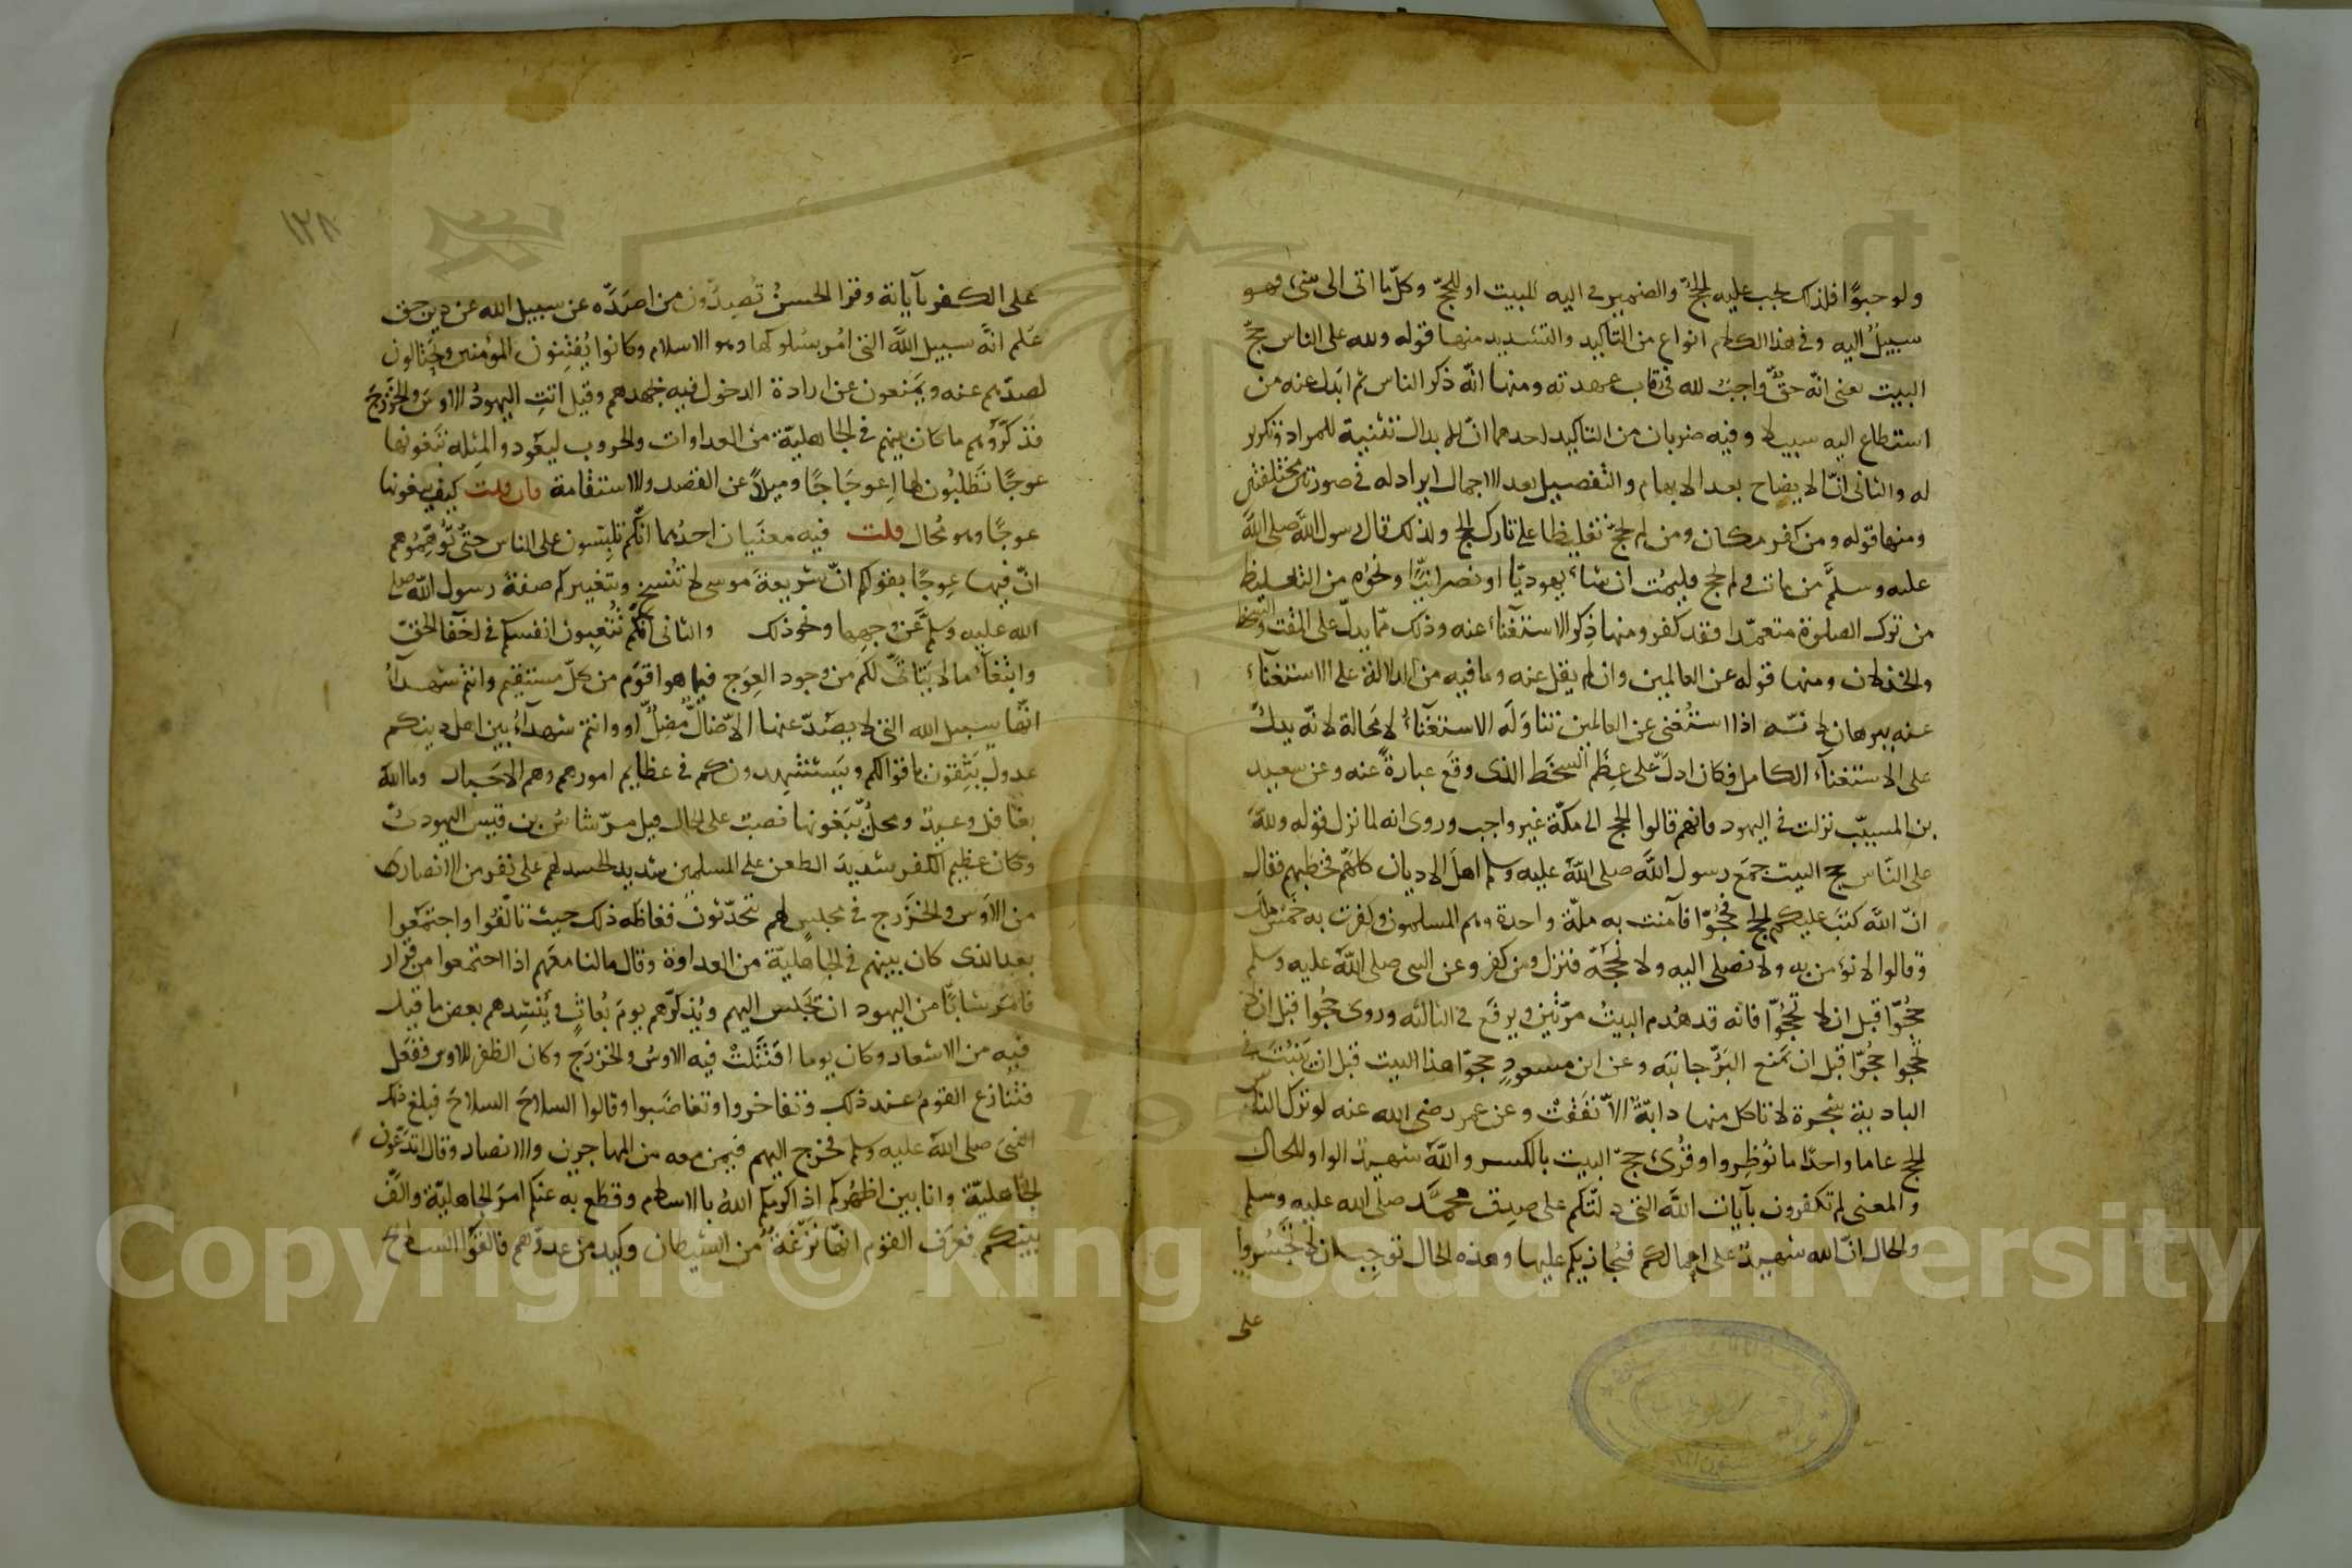 ولو حبوًا فلذلك يجب عليه الحجّ والضمير في اليه للبيت او للحجّ وكلّ ما اتى الى شئ فهو
سبيل اليه وفي هذا الكلام انواع من التاكيد والتشديد منها قوله ولله على الناس حجّ
البيت يعنى انّه حقّ واجبٌ لله في رقاب عهدته ومنها انّه ذكر الناس ثم ابدل عنه من
استطاع اليه سبيلا وفيه ضربان من التاكيد احدهما انّ الابدال تثنية للمراد وتكرير
له والثانى انّ الايضاح بعد الابهام والتفصيل بعد الاجمال ايراد له في صورتين مختلفتين
ومنها قوله ومن كفر مكان ومن لم يحجّ تغليظا على تارك الحج ولذلك قال رسول الله صلى الله
عليه وسلّم من مات ولم يحج فليمت ان شاء يهوديّا او نصرانيًّا ونحوه من التغليظ
من ترك الصلوة متعمّدا فقد كفر ومنها ذِكر الاستغنآء عنه وذلك ممّا يدلّ على المقت والسخط
والخذلان ومنها قوله عن العالمين وان لم يقل عنه وما فيه من الدلالة على الاستغنآء
عنه ببرهان لانّه اذا استغنى عن العالمين تناوَلَه الاستغنآءُ لا محالة لانّه يدلّ
على الاستغنآء الكامل فكان ادلّ على عِظَم السخَط الذى وقَع عبارةً عنه وعن سعيد
بن المسيّب نزلت في اليهود فانهم قالوا الحج الى مكّة غير واجب وروى انه لما نزل قوله ولله
على النّاس حج البيت جمَع رسول اللّه صلى اللّه عليه وسلم اهلَ الاديان كلهم فخطبهم فقال
انّ اللّه كتبَ عليكم الحج فحُجّوا فآمنت به ملّة واحدة وهم المسلمون وكفرت به خمس ملل
وقالوا لا نؤمن به ولا نصلى اليه ولا نحجّه فنزل ومن كفر وعن النبى صلى اللّه عليه وسلم
حُجّوا قبل ان لا تحجّوا فانه قد هُدم البيتُ مرّتين ويرفَع في الثالثه وروى حجّوا قبل ان لا
تحجوا حجّوا قبل ان يمنع البَرُّ جانبَه وعن ابن مسعودٍ حجّوا هذا البيت قبل ان تنبُتَ في
البادية شجرة لا تاكل منها دابّة الاّ نفَقتْ وعن عمر رضى الله عنه لو ترك الناس
الحج عاما واحدًا ما نُوظِروا وقُرئ حجّ البيت بالكسر واللّه شهيد الواو للحال
والمعنى لم تكفرون بآيات اللّه التى دلّتكم على صدق محمّد صلى الله عليه وسلم
والحال انّ الله شهيد على اعمالكم فيُجازيكم عليها وهذه الحال توجب ان لا تجسُروا
على
١٢٨
على الكفر بآياته وقرا الحسنُ تُصِدّون من اصدّه عن سبيل الله عن دين حق
عُلم انّه سبيل اللّه التى امُر بسُلوكها وهو الاسلام وكانوا يُفتِنون المؤمنين ويحتالون
لصدّهم عنه ويمنعون من ارادة الدخول فيه بجهدهم وقيل اتتِ اليهودُ الاوسَ والخزرجَ
فذكّرُوهم ما كان بينهم في الجاهليّة من العداوات والحروب ليعود والمثله تبغونها
عوجًا تطلبُون لها اعوجَاجًا وميلاً عن القصد والاستقامة فان قلت كيف يبغونها
عوجًا وهو مُحال قلت فيه معنَيان احدُهما انّكم تلبِسون على الناس حتّى تُوهِّمُوهم
انّ فيها عِوجًا بقولكم انّ شريعةَ موسى لا تُنسخ وبتغييركم صفة رسول اللّه صلى
الله عليه وسلّم عن وجهها ونحو ذلك والثانى انّكم تُتعِبون انفسكم في اخفآء الحقّ
وابتغآء ما لا يتاتّى لكم من وجود العِوَج فيما هو اقوَم من كلّ مستقيم وانتم شهدآءُ
انّها سبيل الله التى لا يصُدّ عنها الاّ ضالٌّ مُضِلٌّ او وانتم شهدآءُ بين اهل دينكم
عدول يثِقون باقوالكم ويستشهدونكم في عظايم امورهم وهم الاحبار وما اللّه
بغافل وعيدٌ ومحلّ تبغونها نصبٌ على الحال قيل مرّ شاسُ بن قيس اليهودىّ
وكان عظيم الكفر شديدَ الطعن على المسلمين شديد الحسد لهم على نفر من الانصار
من الاوس والخزرج في مجلسٍ لهم يتحدّثونَ فغاظَه ذلك حيث تالّفوا واجتمَعوا
بعد الذى كان بينهم في الجاهليّة من العداوة وقال ما لنا معَهم اذا اجتمعوا من قرار
فامَر شابًّا من اليهود ان يجلس اليهم ويُذكرّهم يومَ بُعاثٍ ويُنشِدهم بعض ما قيل
فيه من الاشعار وكان يوما اقتَتَلتْ فيه الاوسُ والخزرَج وكان الظفر للاوس ففعَل
فتنازع القومُ عند ذلك وتفاخروا وتغاضَبوا وقالوا السلاحَ السلاحَ فبلغ ذلك
النبىَ صلى اللّه عليه وسلم فخرج اليهم فيمن معه من المهاجرين والانصار وقال اتدعون
الجاهليّة وانا بين اظهُركم اذ اكرمكم اللّهُ بالاسلام وقطع به عنكم امرَ الجاهليّة والّفَ
بينكم فعرَف القوم انّها نزغَةٌ من الشيطان وكيد من عدوّهم فالقَوا السلاحَ
Copyright © King Saud University